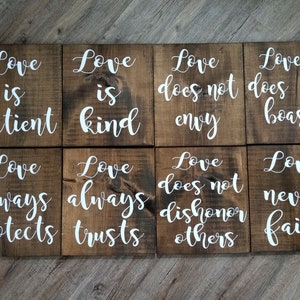 ove
is
tient
Love
is
kind
Love
does not
envy
Love
does
boas
Love
ways
tects
Love
always
trusts
Love
does not
dishonor
others
Love
nev
fai